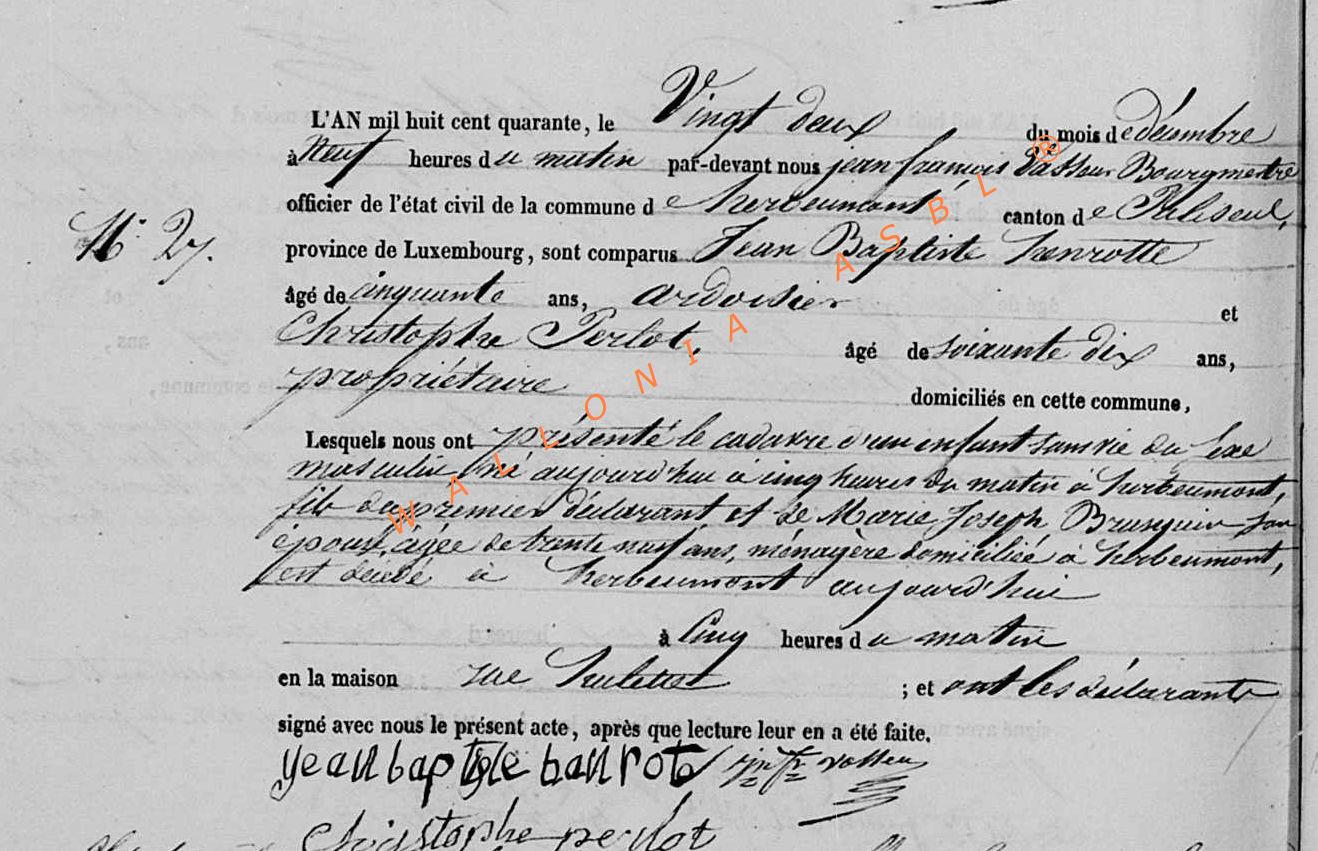 L'AN mil huit cent quarante, le Vingt deux du mois de décembre
à Neuf heures du matin par-devant nous jean françois Vasseur Bourgmestre
officier de l'état civil de la commune de herbeumont canton de Paliseul,
N° 27. province de Luxembourg, sont comparus Jean Baptiste henrotte
âgé de cinquante ans, ardoisier et
Christophe Perlot, âgé de soixante dix ans,
propriétaire domiciliés en cette commune,
Lesquels nous ont présenté le cadavre d'un enfant sans vie du sexe
masculin né aujourd'hui à cinq heures du matin à herbeumont,
fils du premier déclarant et de Marie Joseph son
épouse, agée de trente neuf ans, ménagère domiciliée à herbeumont,
est décédé à herbeumont aujourd'hui
à Cinq heures du matin
en la maison rue ; et ont les déclarants
signé avec nous le présent acte, après que lecture leur en a été faite.
yean baptiste banrot
Christophe perlot
WALLONIA ASBL ®